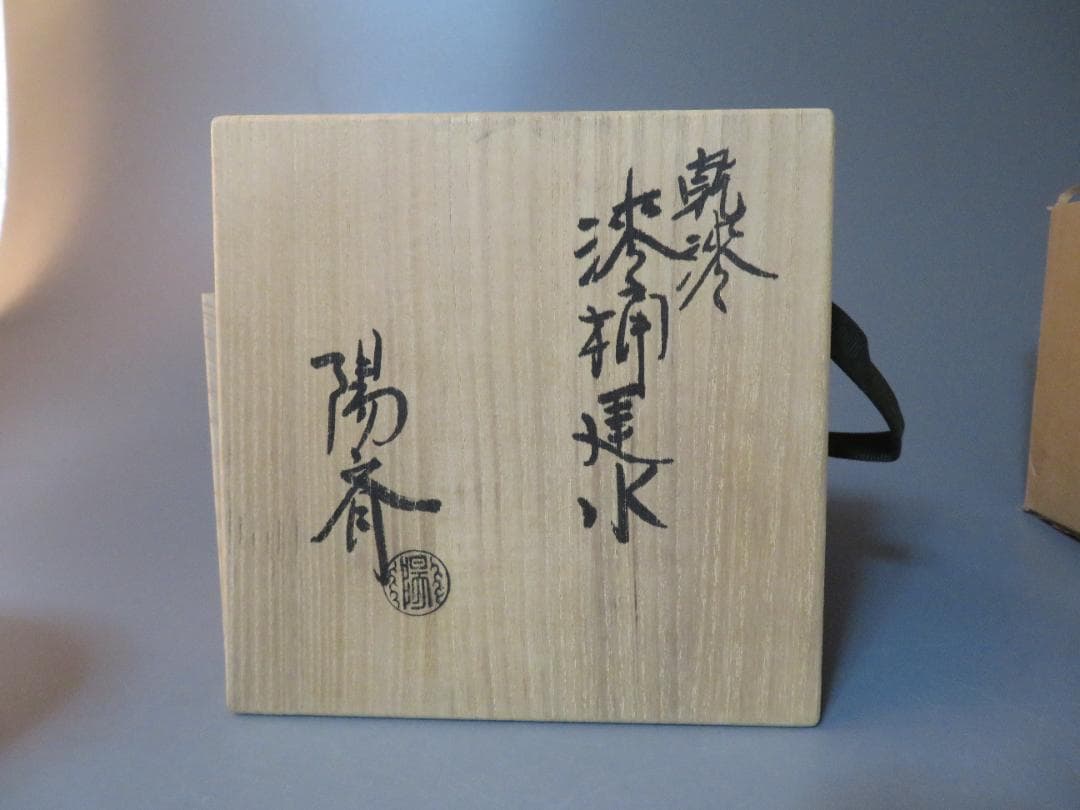 乾漆
漆桶建水
陽斎
陽